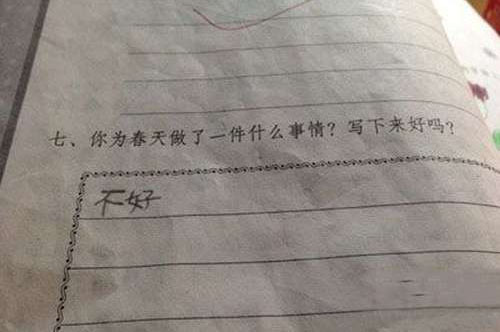 七、你为春天做了一件什么事情？写下来好吗？
不好